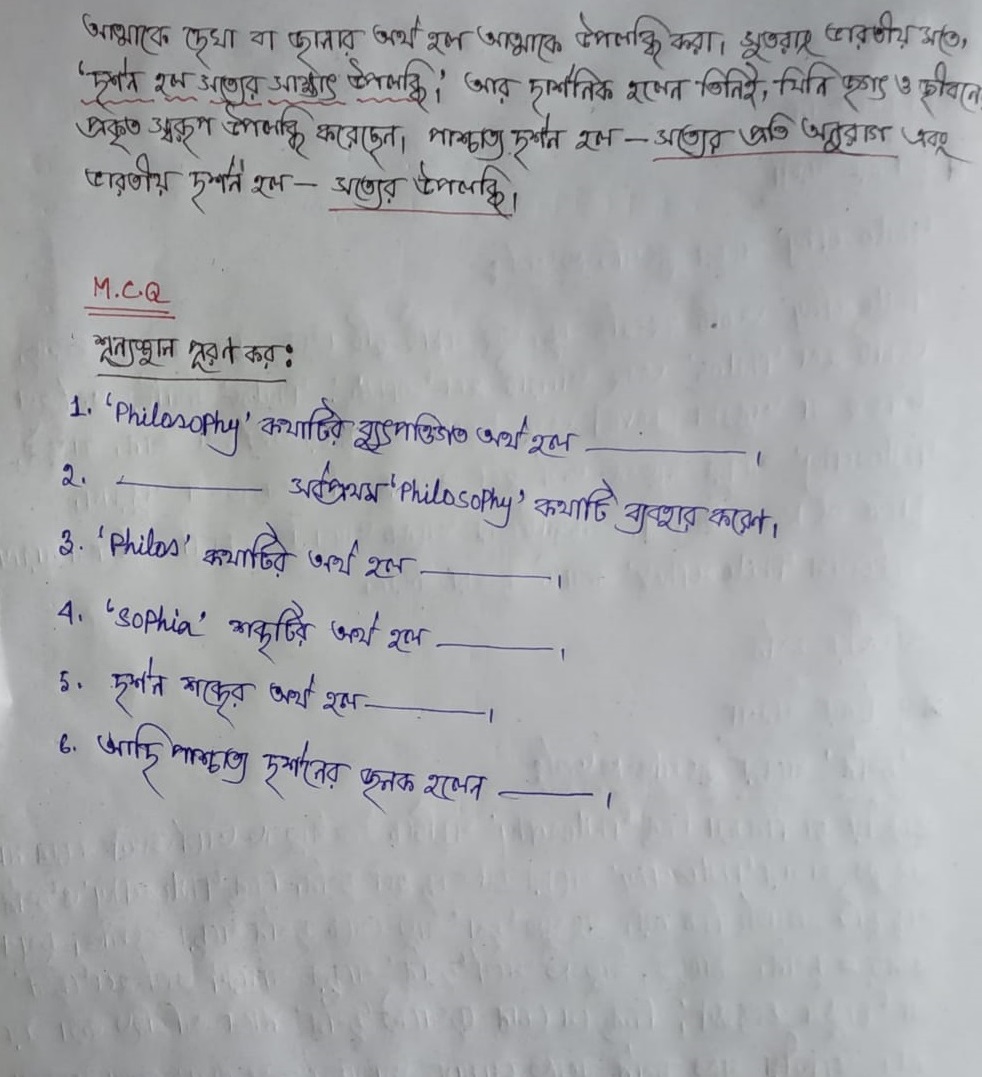 আত্মাকে দেখা বা জানার অর্থ হল আত্মাকে উপলব্ধি করা। সুতরাং ভারতীয় মতে,
'দর্শন হল সত্যের সাক্ষাৎ উপলব্ধি'; আর দার্শনিক হলেন তিনিই, যিনি জগৎ ও জীবনে
প্রকৃত স্বরূপ উপলব্ধি করেছেন। পাশ্চাত্য দর্শন হল – সত্যের প্রতি অনুরাগ এবং
ভারতীয় দর্শন হল – সত্যের উপলব্ধি।
M.C.Q
শূন্যস্থান পূরণ কর:
1. 'Philosophy' কথাটির ব্যুৎপত্তিগত অর্থ হল ________।
2. ________ সর্বপ্রথম 'Philosophy' কথাটি ব্যবহার করেন।
3. 'Philos' কথাটির অর্থ হল ________।
4. 'Sophia' শব্দটির অর্থ হল ________।
5. দর্শন শব্দের অর্থ হল ________।
6. আদি পাশ্চাত্য দর্শনের জনক হলেন ________।